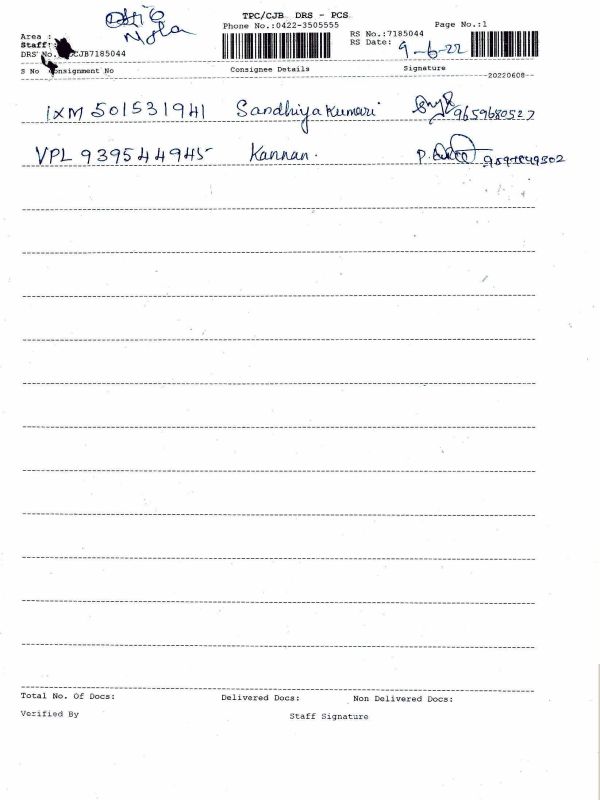 TPC/CJB DRS - PCS
Phone No.:0422-3505555
Page No.:1
RS No.:7185044
RS Date: 9-6-22
Area :
Staff:
DRS No. CJB7185044
S No Consignment No Consignee Details Signature
20220608
IXM 501531941 Sandhiya Kumari 9659680527
VPL 939544945 Kannan.
Total No. Of Docs: Delivered Docs: Non Delivered Docs:
Verified By Staff Signature